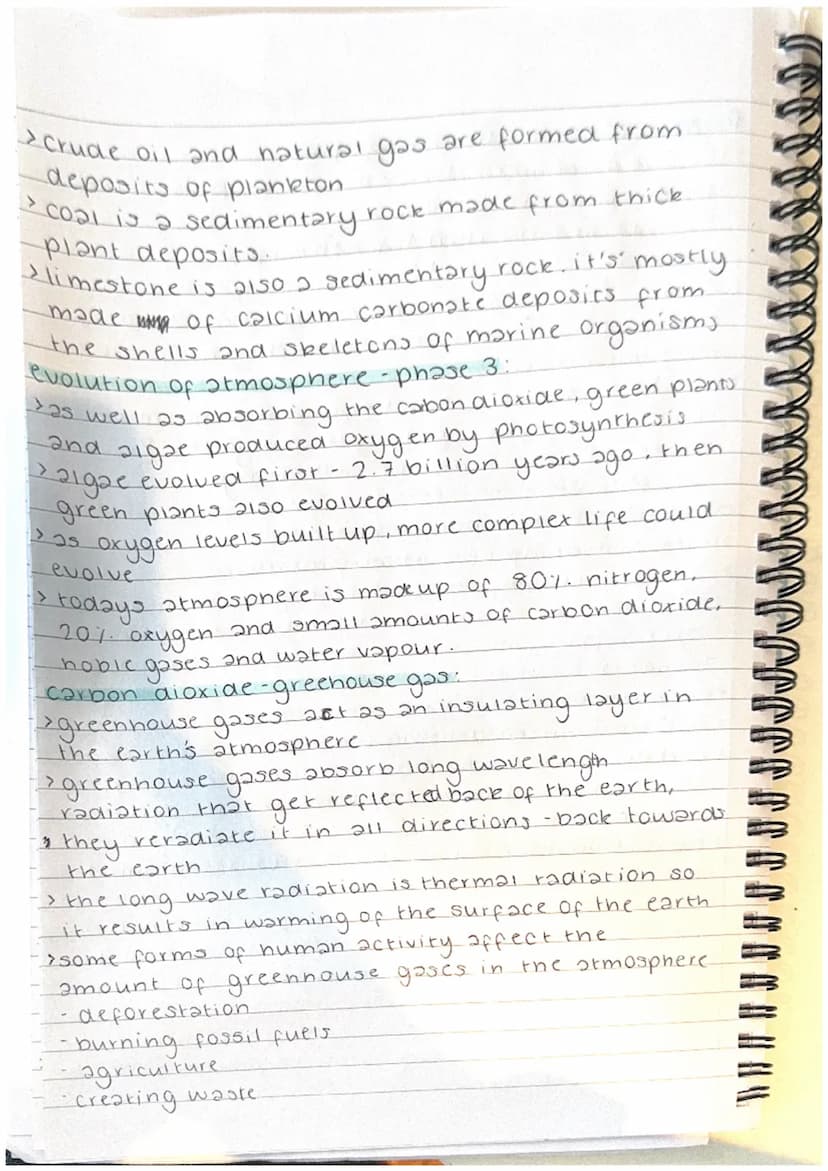 > crude oil and natural gas are formed from
deposits of plankton
> coal is a sedimentary rock made from thick
plant deposits.
> limestone is also a sedimentary rock. it's mostly
made of calcium carbonate deposits from
the shells and skeletons of marine organisms
evolution of atmosphere - phase 3:
> as well as absorbing the cabon dioxide, green plants
and algae produced oxygen by photosynthesis
> algae evolved first - 2.7 billion years ago, then
green plants also evolved
> as oxygen levels built up, more complex life could
evolve
> todays atmosphere is made up of 80% nitrogen,
20% oxygen and small amounts of carbon dioxide,
noble gases and water vapour.
carbon dioxide - greehouse gas:
> greenhouse gases act as an insulating layer in
the earth's atmosphere
> greenhouse gases absorb long wavelength
radiation that get reflected back of the earth,
> they reradiate it in all directions - back towards
the earth
> the long wave radiation is thermal radiation so
it results in warming of the surface of the earth
> some forms of human activity affect the
amount of greenhouse gases in the atmosphere
- deforestation
- burning fossil fuels
- agriculture
- creating waste